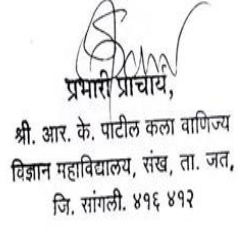 प्रभारी प्राचार्य,
श्री. आर. के. पाटील कला वाणिज्य
विज्ञान महाविद्यालय, संख, ता. जत,
जि. सांगली. ४१६ ४१२